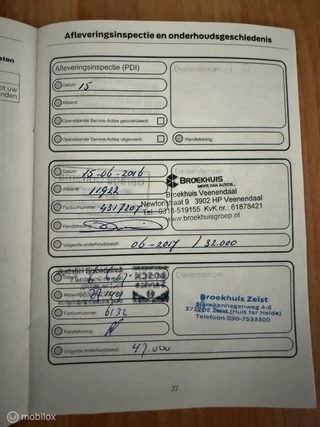 Afleveringsinspectie en onderhoudsgeschiedenis
Afleveringsinspectie (PDI)
Datum: 15
Afstand:
Openstaande Service-Acties gecontroleerd:
Openstaande Service-Acties uitgevoerd:
Handtekening:
Datum: 15-06-2016
Afstand: 11922
Factuurnummer: 4317207
Handtekening:
Volgende onderhoudsbeurt: 06-2017 / 32.000
BROEKHUIS
MEER DAN AUTO'S..
Broekhuis Veenendaal
Newtonstraat 9 3902 HP Veenendaal
Tel.: 0318-519155 KvK nr.: 61878421
www.broekhuisgroep.nl
Factuurnummer: 6132
Handtekening:
Volgende onderhoudsbeurt: 47.000
Broekhuis Zeist
Blanckenhagenweg 4-6
3712DE Zeist (Huis ter Heide)
Telefoon 030-7533300
27
© mobilox